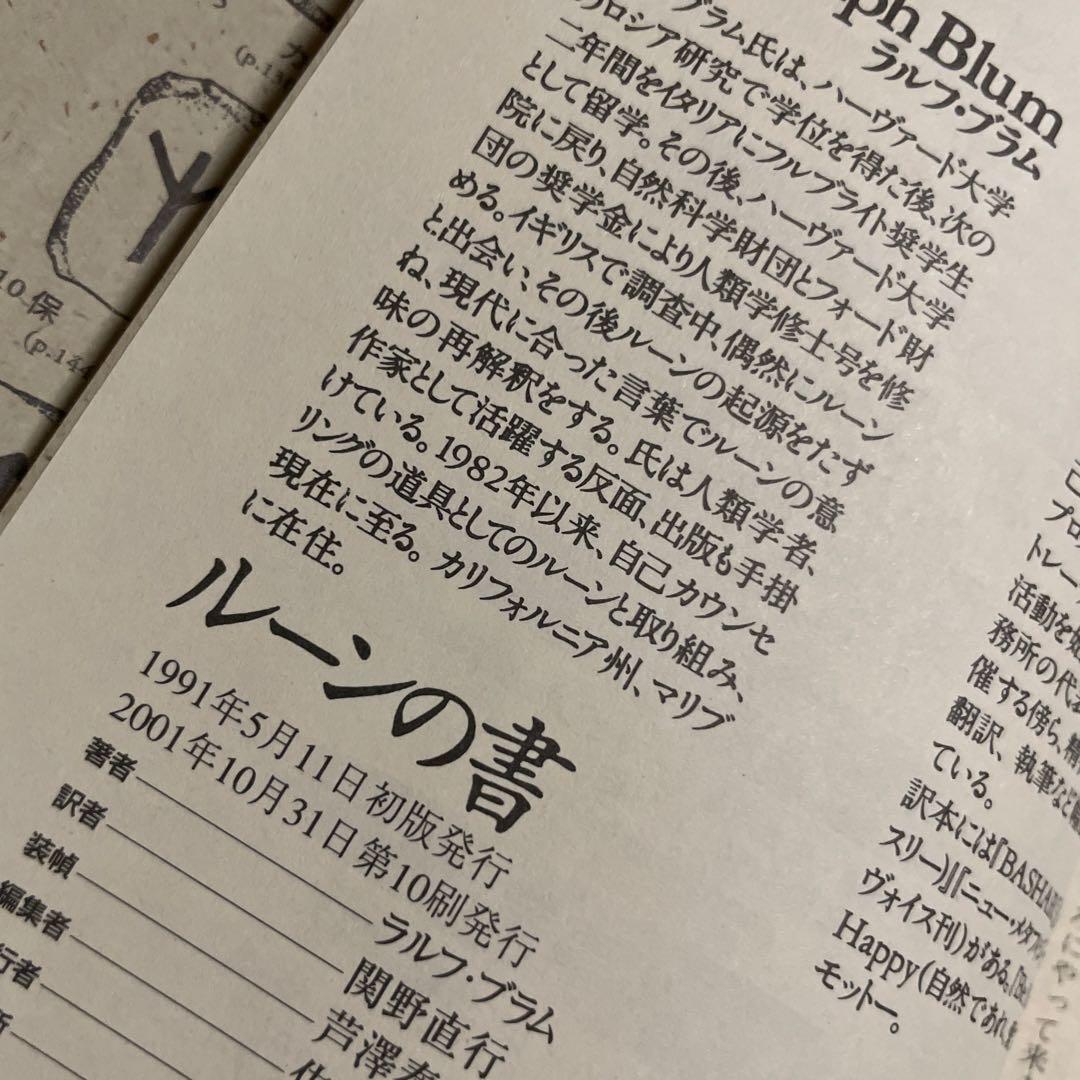 ph Blum
ラルフ・ブラム
ブラム氏は、ハーヴァード大学
のロシア研究で学位を得た後、次の
二年間をイタリアにフルブライト奨学生
として留学。その後、ハーヴァード大学
院に戻り、自然科学財団とフォード財
団の奨学金により人類学修士号を修
める。イギリスで調査中、偶然にルーン
と出会い、その後ルーンの起源をたず
ね、現代に合った言葉でルーンの意
味の再解釈をする。氏は人類学者、
作家として活躍する反面、出版も手掛
けている。1982年以来、自己カウンセ
リングの道具としてのルーンと取り組み、
現在に至る。カリフォルニア州、マリブ
に在住。
ルーンの書
1991年5月11日初版発行
2001年10月31日第10刷発行
著者 ラルフ・ブラム
訳者 関野直行
装幀 芦澤
編集者
行者
所
10 保
(p.144
(p.13
己
プロ
トレー
活動を
務所の代
催する傍ら、精
翻訳、執筆など
ている。
訳本には『BASHAR
スリー)』『ニュー・メタフ
ヴォイス刊)がある。
Happy(自然であれ
モットー。
にやって来